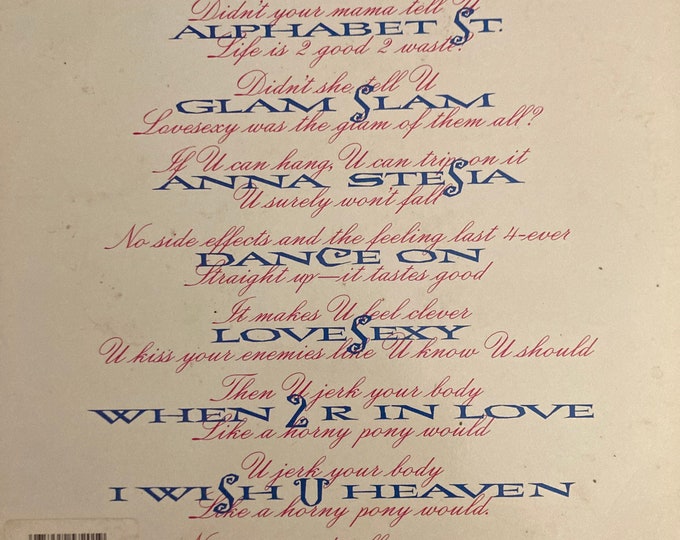 Didn't your mama tell U
ALPHABET ST.
Life is 2 good 2 waste?
Didn't she tell U
GLAM SLAM
Lovesexy was the glam of them all?
If U can hang, U can trip on it
ANNA STESIA
U surely won't fall
No side effects and the feeling last 4-ever
DANCE ON
Straight up—it tastes good
It makes U feel clever
LOVESEXY
U kiss your enemies like U know U should
Then U jerk your body
WHEN 2 R IN LOVE
Like a horny pony would
U jerk your body
I WISH U HEAVEN
Like a horny pony would.